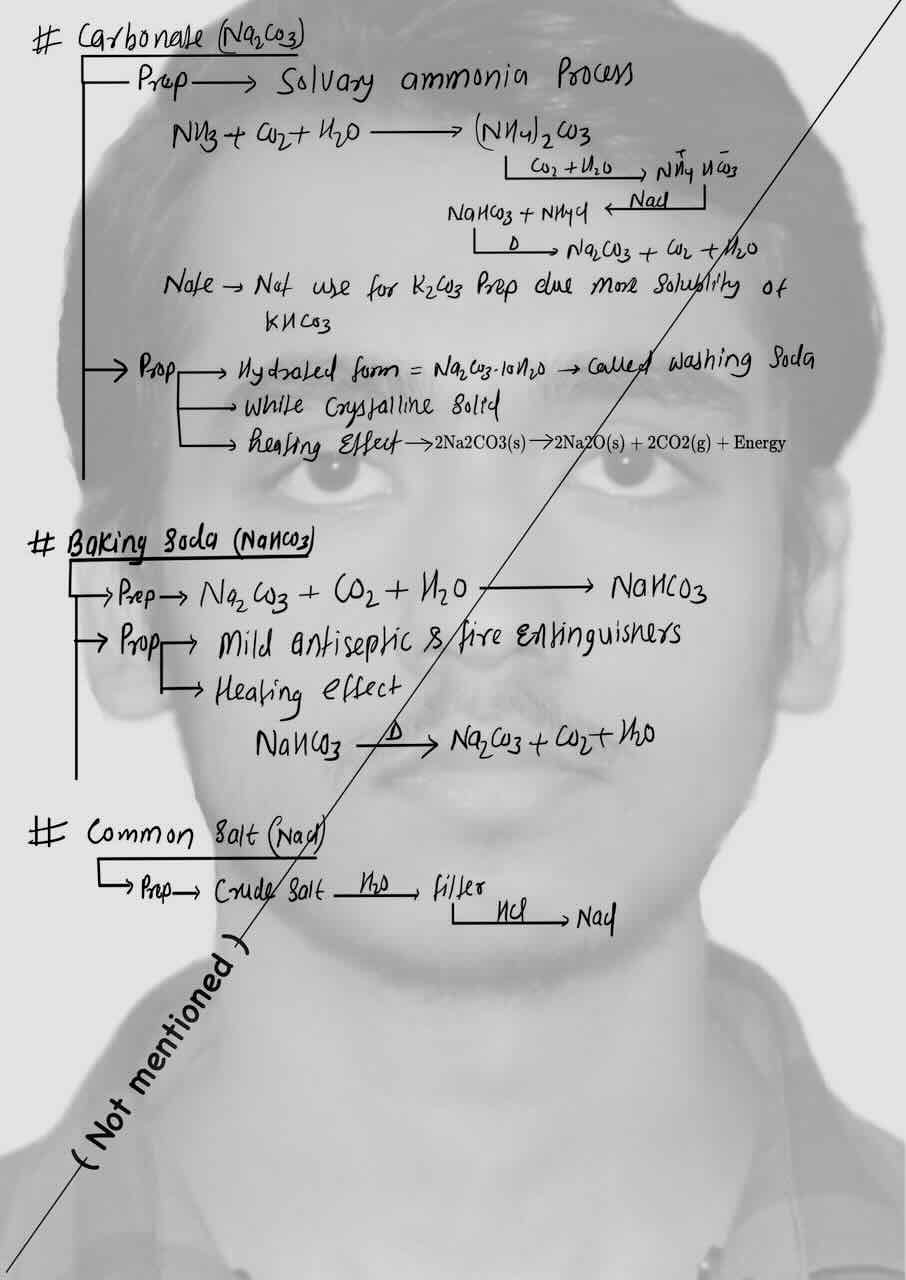 # Carbonate (Na2CO3)
Prep → Solvary ammonia Process
NH3 + CO2 + H2O → (NH4)2CO3
CO2 + H2O → NH4⁺ HCO3⁻
NaHCO3 + NH4Cl ← NaCl
Δ → Na2CO3 + CO2 + H2O
Note → Not use for K2CO3 Prep due more Solublity of
KHCO3
→ Prop → Hydrated form = Na2CO3·10H2O → Called Washing Soda
→ White Crystalline Solid
→ Heating Effect → 2Na2CO3(s) → 2Na2O(s) + 2CO2(g) + Energy
# Baking Soda (NaHCO3)
→ Prep → Na2CO3 + CO2 + H2O → NaHCO3
→ Prop → Mild antiseptic & fire Extinguishers
→ Heating effect
NaHCO3 Δ → Na2CO3 + CO2 + H2O
# Common Salt (NaCl)
→ Prep → Crude Salt H2O → filter
HCl → NaCl
( Not mentioned )